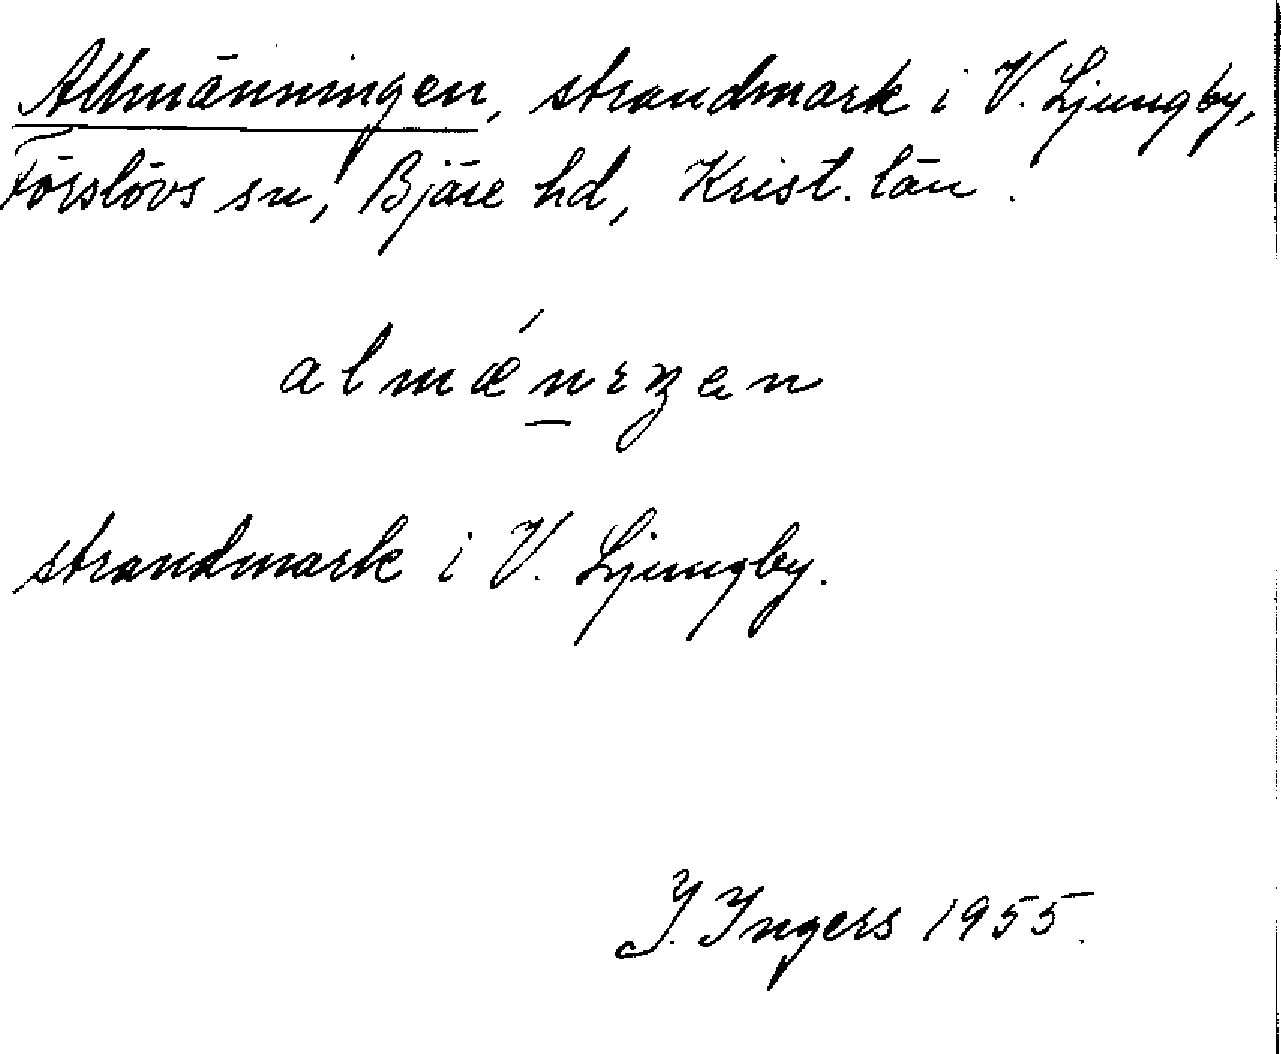 Allmänningen, strandmark i V. Ljungby,
Förslövs sn, Bjäre hd, Krist. län.
almǽn̲ıŋen
strandmark i V. Ljungby.
I. Ingers 1955.